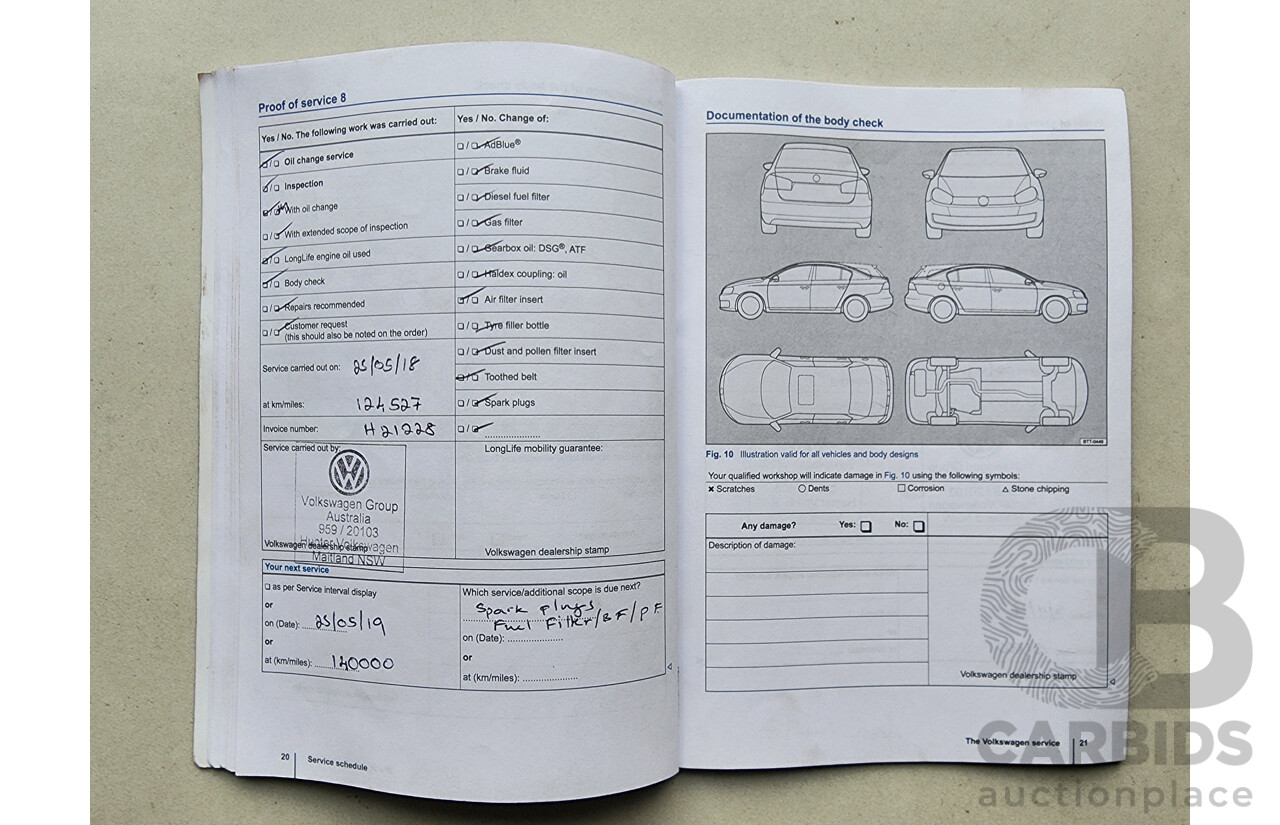 Proof of service 8
Yes / No. The following work was carried out:
❑/❑ Oil change service
❑/❑ Inspection
❑/❑ With oil change
❑/❑ With extended scope of inspection
❑/❑ LongLife engine oil used
❑/❑ Body check
❑/❑ Repairs recommended
❑/❑ Customer request
(this should also be noted on the order)
Service carried out on: 25/05/18
at km/miles: 124527
Invoice number: H21228
Service carried out by:
Volkswagen Group
Australia
959 / 20103
Hunter Volkswagen
Volkswagen dealership stamp
Maitland NSW
Yes / No. Change of:
❑/❑ AdBlue®
❑/❑ Brake fluid
❑/❑ Diesel fuel filter
❑/❑ Gas filter
❑/❑ Gearbox oil: DSG®, ATF
❑/❑ Haldex coupling: oil
❑/❑ Air filter insert
❑/❑ Tyre filler bottle
❑/❑ Dust and pollen filter insert
❑/❑ Toothed belt
❑/❑ Spark plugs
❑/❑ ....................
LongLife mobility guarantee:
Volkswagen dealership stamp
Your next service
❑ as per Service interval display
or
on (Date): 25/05/19
or
at (km/miles): 140000
Which service/additional scope is due next?
Spark plugs
Fuel Filter/BF/PF
on (Date): ....................
or
at (km/miles): ....................
20 Service schedule
Documentation of the body check
BTT-0446
Fig. 10 Illustration valid for all vehicles and body designs
Your qualified workshop will indicate damage in Fig. 10 using the following symbols:
✗ Scratches ○ Dents □ Corrosion △ Stone chipping
Any damage? Yes: ❑ No: ❑
Description of damage:
Volkswagen dealership stamp
The Volkswagen service 21
CARBIDS
auctionplace